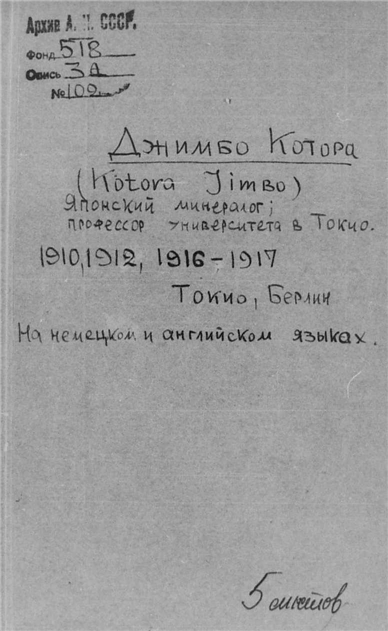 Архив А. Н. СССР.
Фонд 518
Опись 3А
№ 102
Джимбо Котора
(Kōtora Jimbo)
Японский минералог;
профессор университета в Токио.
1910, 1912, 1916-1917
Токио, Берлин
На немецком и английском языках.
5 листов